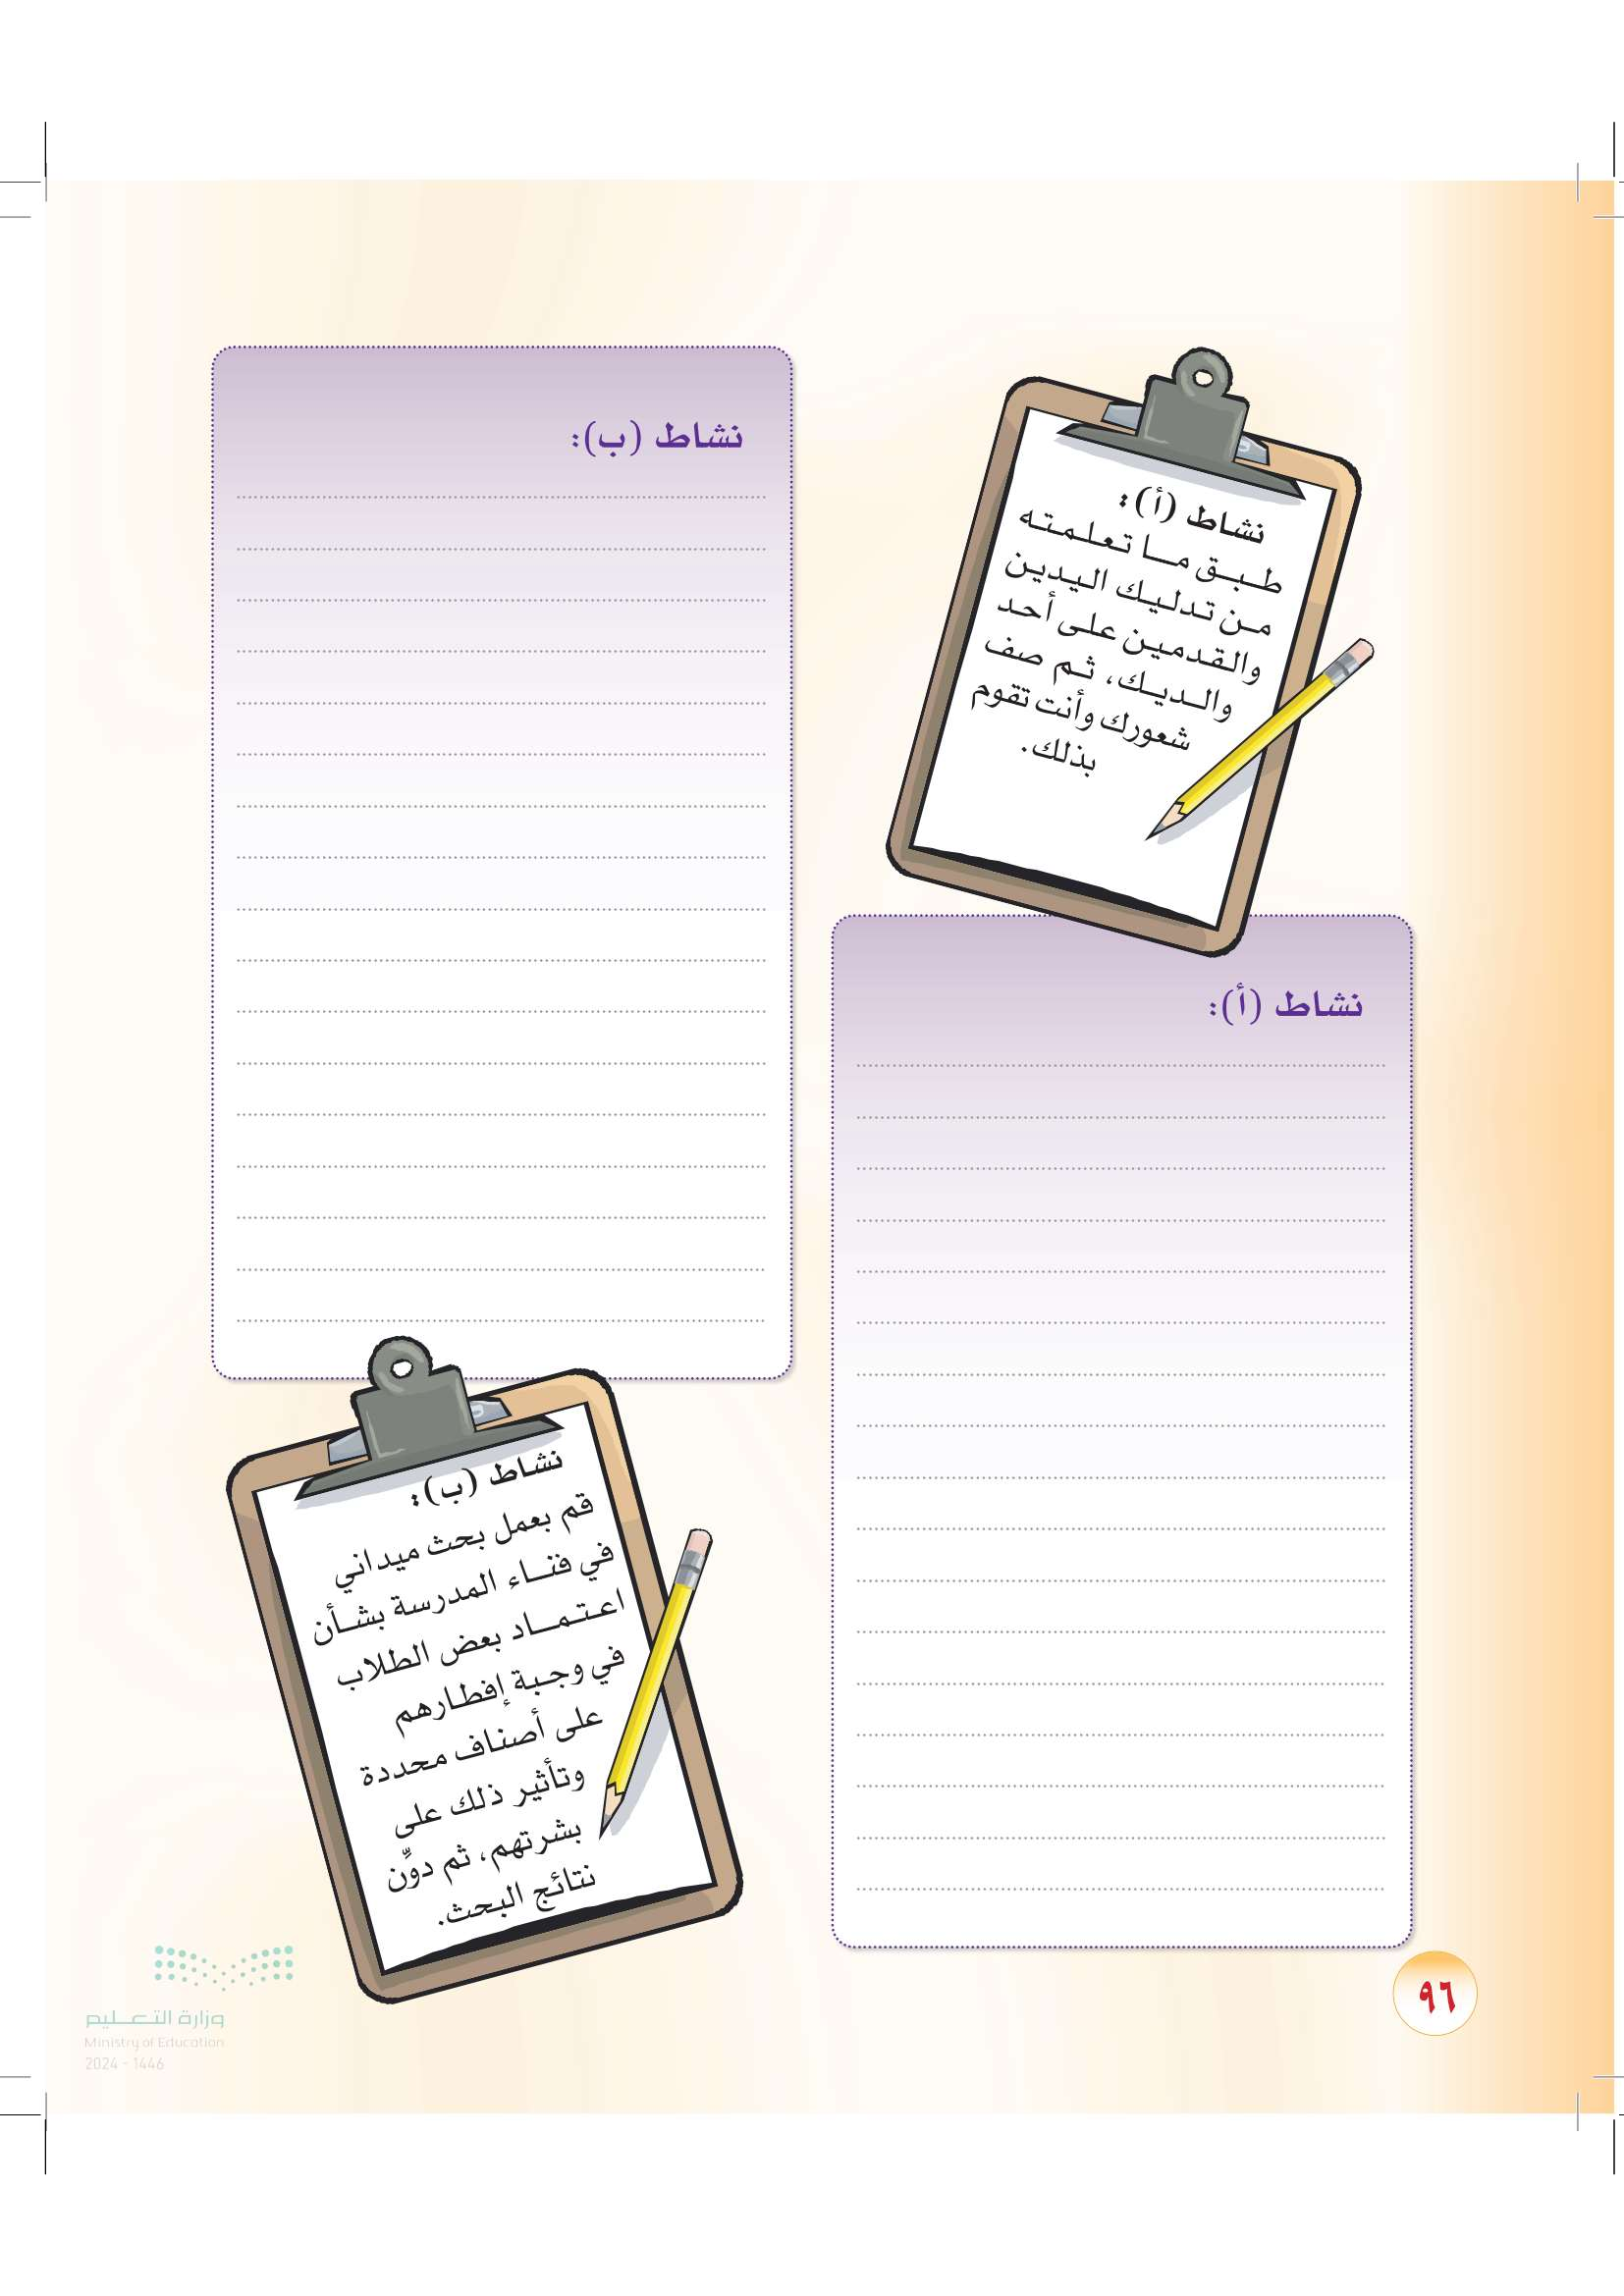 نشاط (أ):
طبق ما تعلمته
من تدليك اليدين
والقدمين على أحد
والديك، ثم صف
شعورك وأنت تقوم
بذلك.
نشاط (أ):
نشاط (ب):
نشاط (ب):
قم بعمل بحث ميداني
في فناء المدرسة بشأن
اعتماد بعض الطلاب
في وجبة إفطارهم
على أصناف محددة
وتأثير ذلك على
بشرتهم، ثم دوِّن
نتائج البحث.
وزارة التعليم
Ministry of Education
2024 - 1446
٩٦